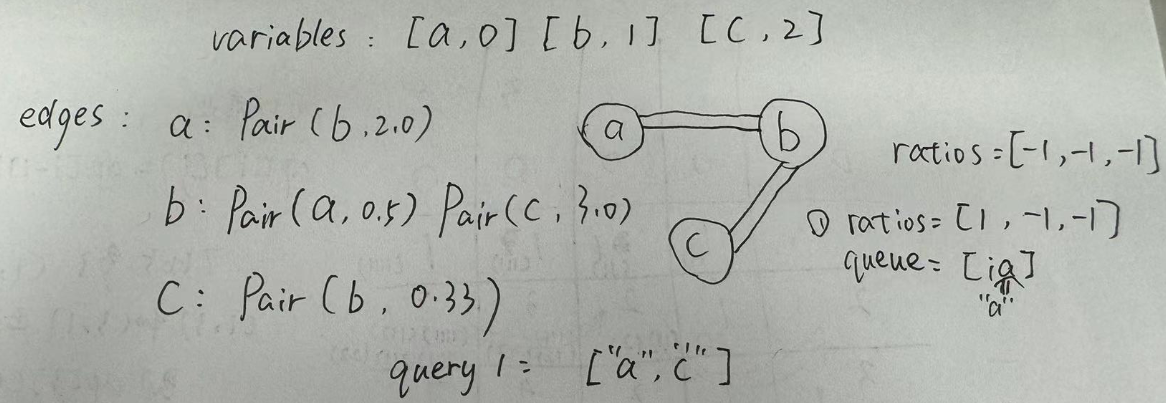 variables : [a, 0] [b, 1] [c, 2]
edges : a: Pair (b, 2.0)
b: Pair (a, 0.5) Pair (c, 3.0)
c: Pair (b, 0.33)
a
b
c
ratios = [-1, -1, -1]
① ratios = [1, -1, -1]
queue = [ia]
"a"
query 1 = ["a", "c"]